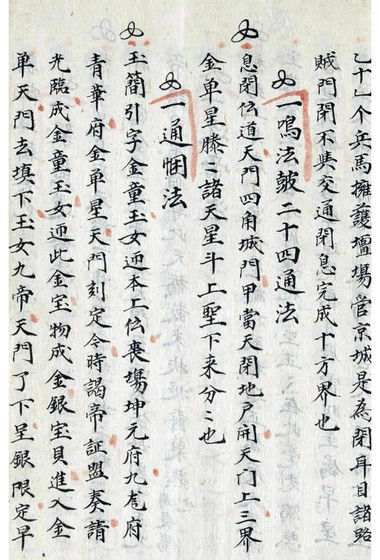 七十七个兵馬擁護壇場営京城是為閉耳目諸路
賊門閉不焦交通閉息完成十方界也
一鳴法皷二十四通法
息閉位道天門四角城門甲當天閉地戸開天门上三界
金单星滕〻諸天星斗上聖下来分〻也
一通悃法
玉簡引字金童玉女迊本上位喪塲坤元府九庬府
青華府金单星天門刻定今時謁帝証盟奏請
光臨成金童玉女迊此金宝物成金銀宝貝進入金
单天門去填下玉女九帝天門了下呈銀限定早